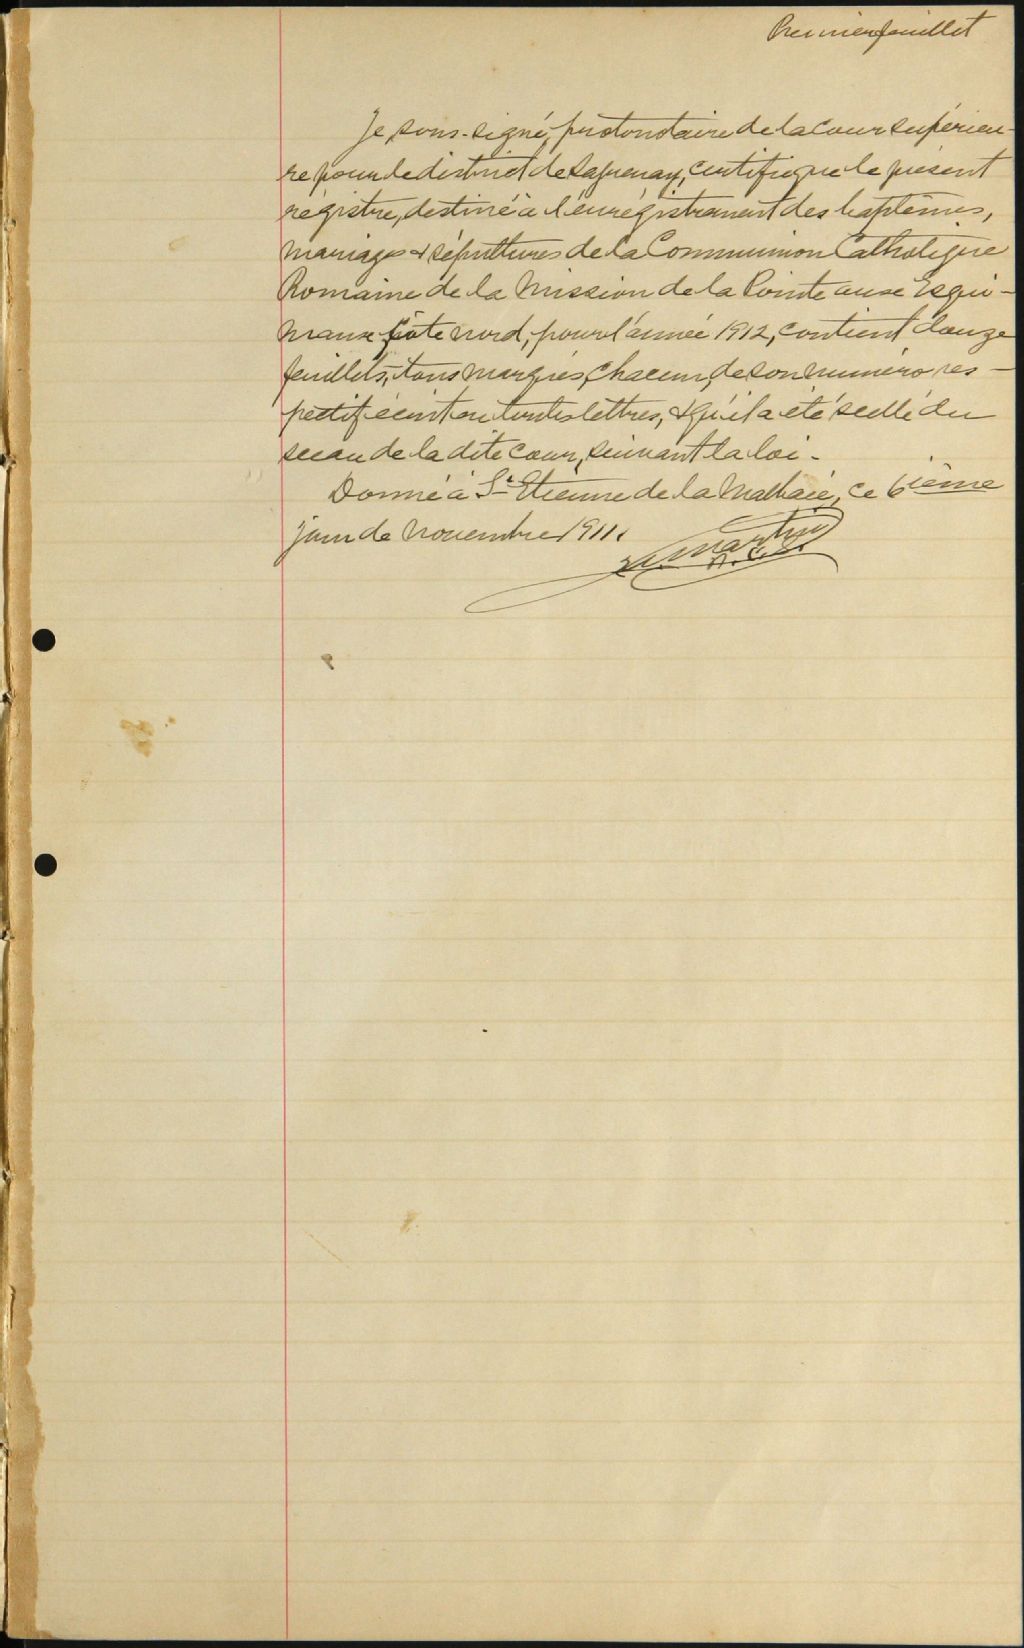 Premier feuillet
Je, sous-signé, protonotaire de la cour supérieu-
re pour le district de Saguenay, certifie que le présent
régistre, destiné à l'enrégistrement des baptêmes,
mariages & sépultures de la Communion Catholique
Romaine de la Mission de la Pointe aux Esqui-
maux Côte nord, pour l'année 1912, contient douze
feuillets, tous marqués, chacun, de son numéro res-
pectif écrit en toutes lettres, & qu'il a été scellé du
sceau de la dite cour, suivant la loi.
Donné à St Etienne de la Malbaie, ce 6ième
jour de novembre 1911.
Martin
P.C.S.